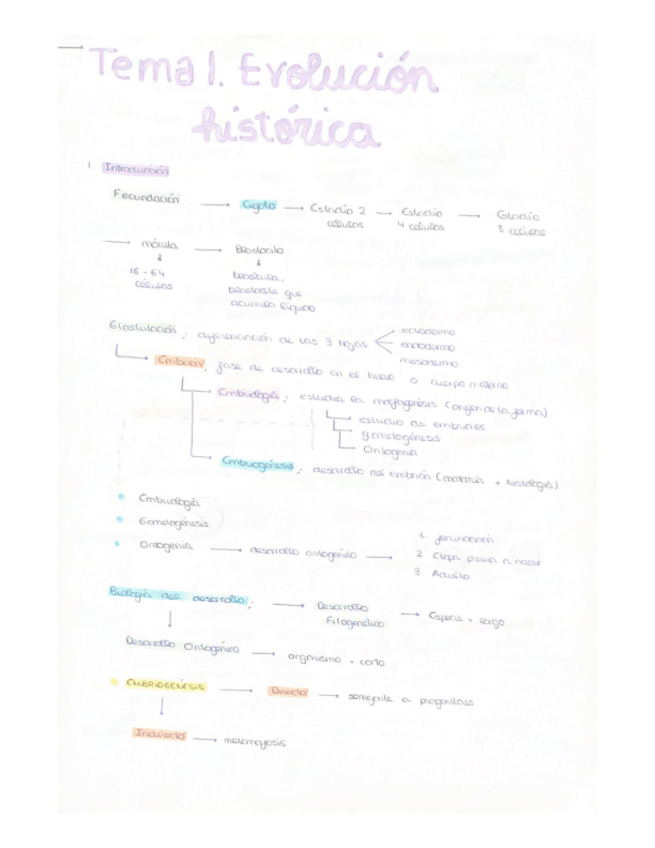 Tema 1. Evolución
histórica
1 Introducción
Fecundación → Cigoto → Estadio 2 células → Estadio 4 células → Estadio 8 células
→ mórula → Blastocito
16-64 células
blastula, blastocele que acumula líquido
Glastulación; diferenciación de las 3 hojas
ectodermo
endodermo
mesodermo
Embrión; fase de desarrollo en el huevo o cuerpo materno
Embriología; estudia la morfogénesis (origen de la forma)
estudio de embriones
gametogénesis
Ontogenia
Embriogénesis; desarrollo del embrión (anatomía + histología)
Embriología
Gametogénesis
Ontogenia → desarrollo ontogénico →
1 fecundación
2 etapa previa a nacer
3 Adulto
Biología del desarrollo; → Desarrollo Filogenético → Especie + largo
Desarrollo Ontogénico → organismo + corto
EMBRIOGENESIS → Directo → semejante a progenitores
Indirecto → metamorfosis